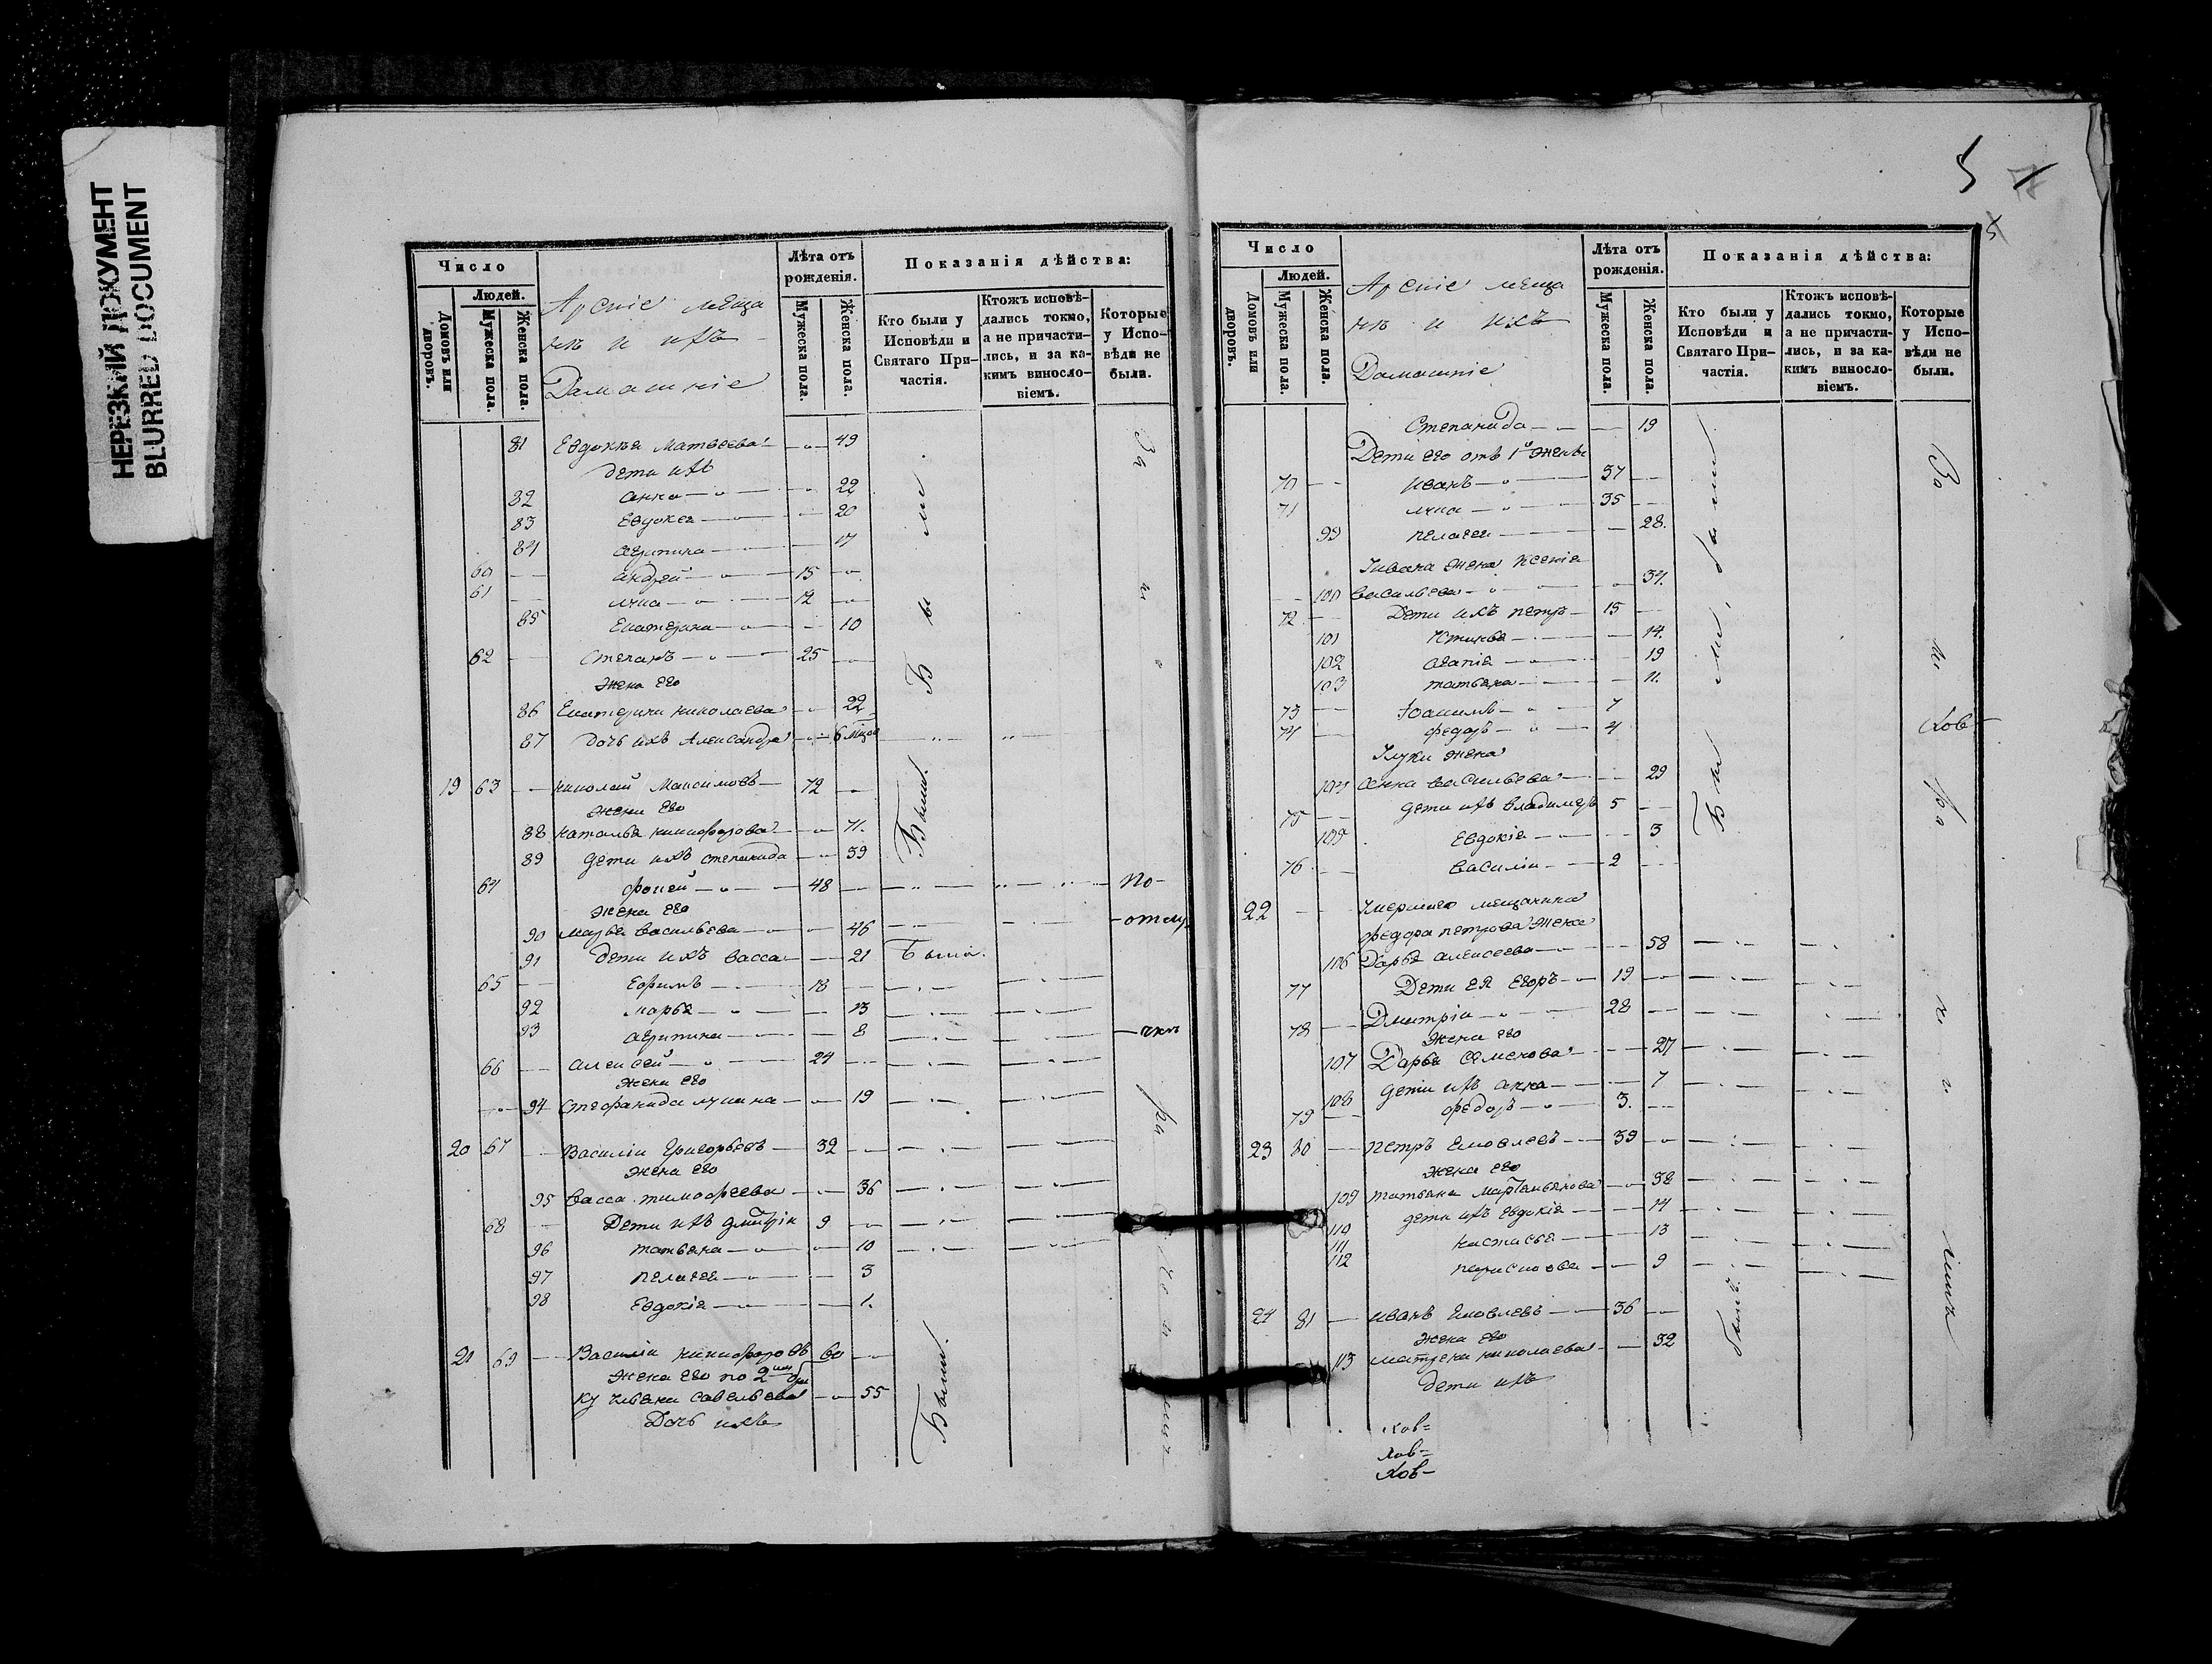 НЕРЕЗКИЙ ДОКУМЕНТ
BLURRED DOCUMENT
Число
Людей.
Домовъ или дворовъ.
Мужеска пола.
Женска пола.
меща
не и ихъ
Домашніе
Лѣта отъ рожденія.
Мужеска пола.
Женска пола.
Показанія дѣйства:
Кто были у Исповѣди и Святаго Причастія.
Ктожъ исповѣдались токмо, а не причастились, и за какимъ винословіемъ.
Которые у Исповѣди не были.
81 Евдокея Матвеева 49
дети ихъ
82 анна 22
83 Евдокея 20
84 агрипина 17
60 андрей 15
61 лука 12
85 Екатерина 10
62 Степанъ 25
жена его
86 Екатерина николаева 22
87 дочь ихъ Александра 6
Были
19 63 николай Максимовъ 72
жена его
88 наталья никифорова 71.
89 дети ихъ степанида 39
Были.
64 фокей 48 по-
жена его
90 марья васильева 46 -отлу
91 дети ихъ васса 21 Была.
65 Ефимъ 18
92 марья 13
93 агрипина 8
66 алексей 24
жена его
94 Стефанида лукина 19
20 67 Василіи Григорьевъ 32
жена его
95 васса тимофеева 36
68 Дети ихъ дмитріи 9
96 татьяна 10
97 пелагея 3
98 Евдокія 1.
21 69 Василіи никифоровъ 60
жена его по 2
савельева 55
Дочь ихъ
Были.
5
5
Число
Людей.
Домовъ или дворовъ.
Мужеска пола.
Женска пола.
меща
не и ихъ
Домашніе
Лѣта отъ рожденія.
Мужеска пола.
Женска пола.
Показанія дѣйства:
Кто были у Исповѣди и Святаго Причастія.
Ктожъ исповѣдались токмо, а не причастились, и за какимъ винословіемъ.
Которые у Исповѣди не были.
Степанида 19
Дети его отъ 1й жены
70 иванъ 37
71 лука 35
99 пелагея 28.
Уивана жена Ксенія
100 васильева 34.
72 Дети ихъ петръ 15
101 14.
102 агапія 19
103 татьяна 11.
73 Іоакимъ 7
74 федоръ 4
Улуки жена
104 Анна васильева 29
75 дети ихъ владимеръ 5
105 Евдокія 3
76 василіи 2
22 Умершаго мещанина
федора петрова жена
106 Дарья алексеева 58
77 Дети ея Егоръ 19
78 Дмитріи 28
жена его
107 Дарья семенова 27
108 дети ихъ анна 7
79 федоръ 3.
23 80 петръ Яковлевъ 39
жена его
109 татьяна 38
110 дети ихъ евдокія 14
111 настасья 13
112 9
24 81 иванъ Яковлевъ 36
жена его
113 матрена николаева 32
дети ихъ